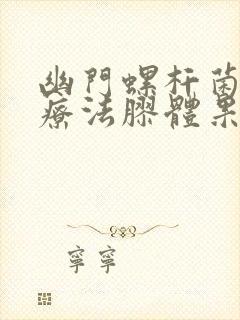 幽門螺杆菌
療法膠體果
寧寧